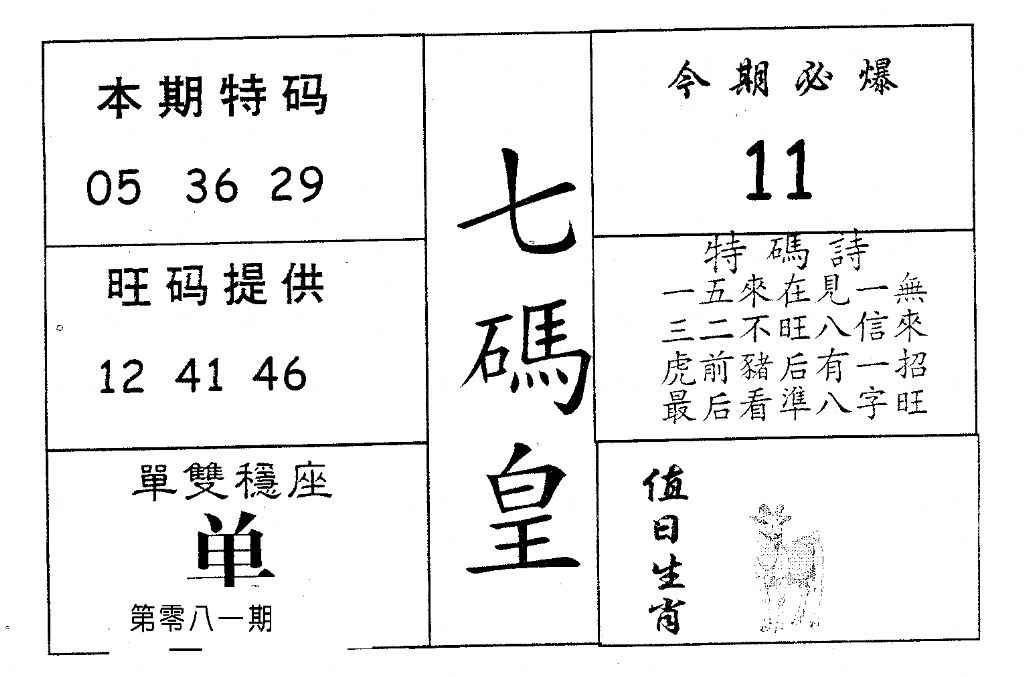 本期特码
05 36 29
旺码提供
12 41 46
單雙穩座
单
第零八一期
七碼皇
今期必爆
11
特碼詩
一五來在見一無
三二不旺八信來
虎前豬后有一招
最后看準八字旺
值日生肖